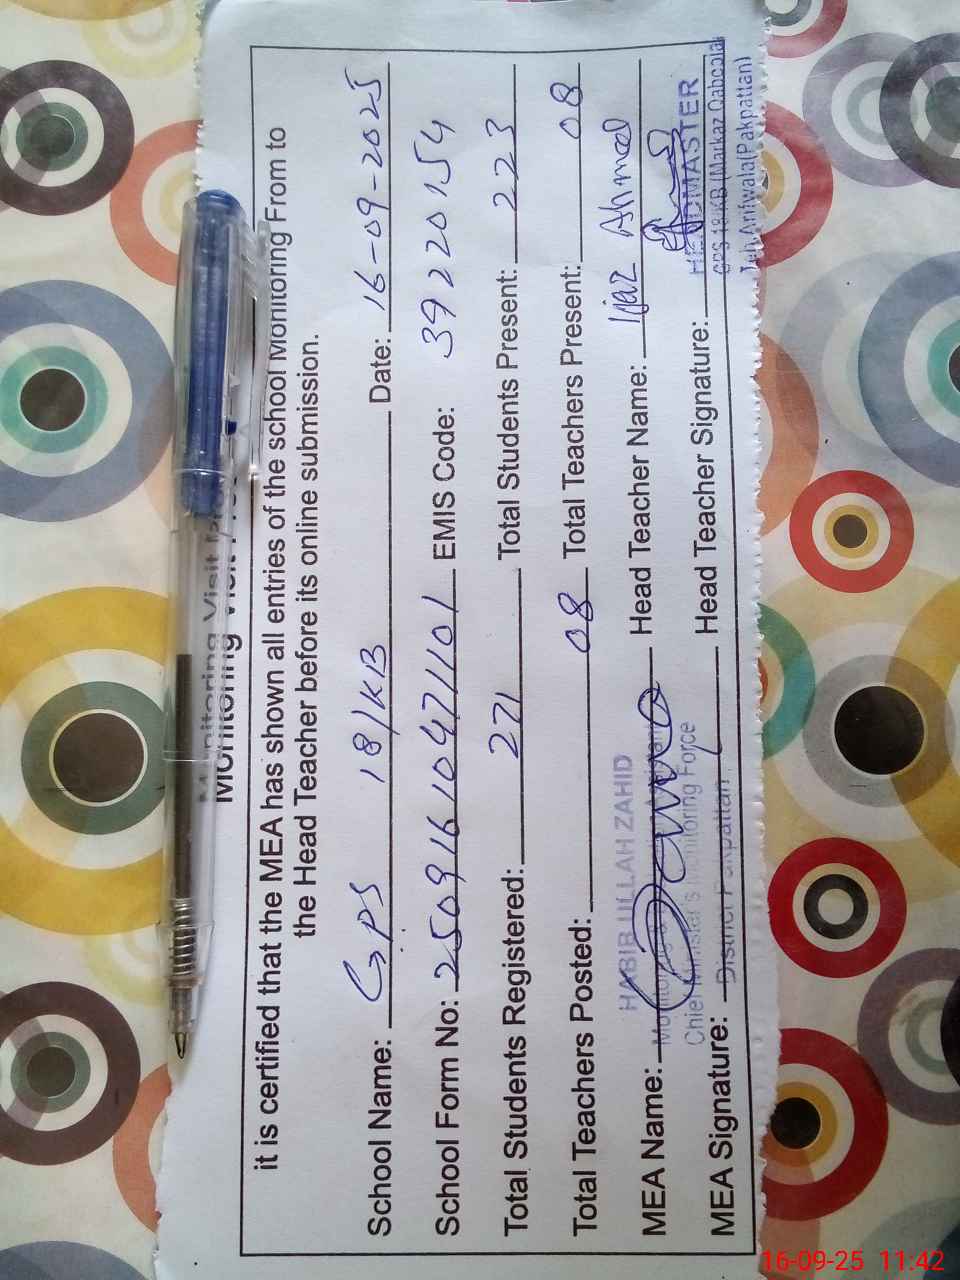 Monitoring Visit
it is certified that the MEA has shown all entries of the school Monitoring From to
the Head Teacher before its online submission.
School Name: GPS 18/KB Date: 16-09-2025
School Form No: 25091610471101 EMIS Code: 39220154
Total Students Registered: 271 Total Students Present: 223
Total Teachers Posted: 08 Total Teachers Present: 08
MEA Name: Head Teacher Name: Ijaz Ahmad
HABIB ULLAH ZAHID
Chief Minister's Monitoring Force
District Pakpattan
MEA Signature: Head Teacher Signature:
HEADMASTER
GPS 18/KB (Markaz
Teh.Arifwala(Pakpattan)
16-09-25 11:42